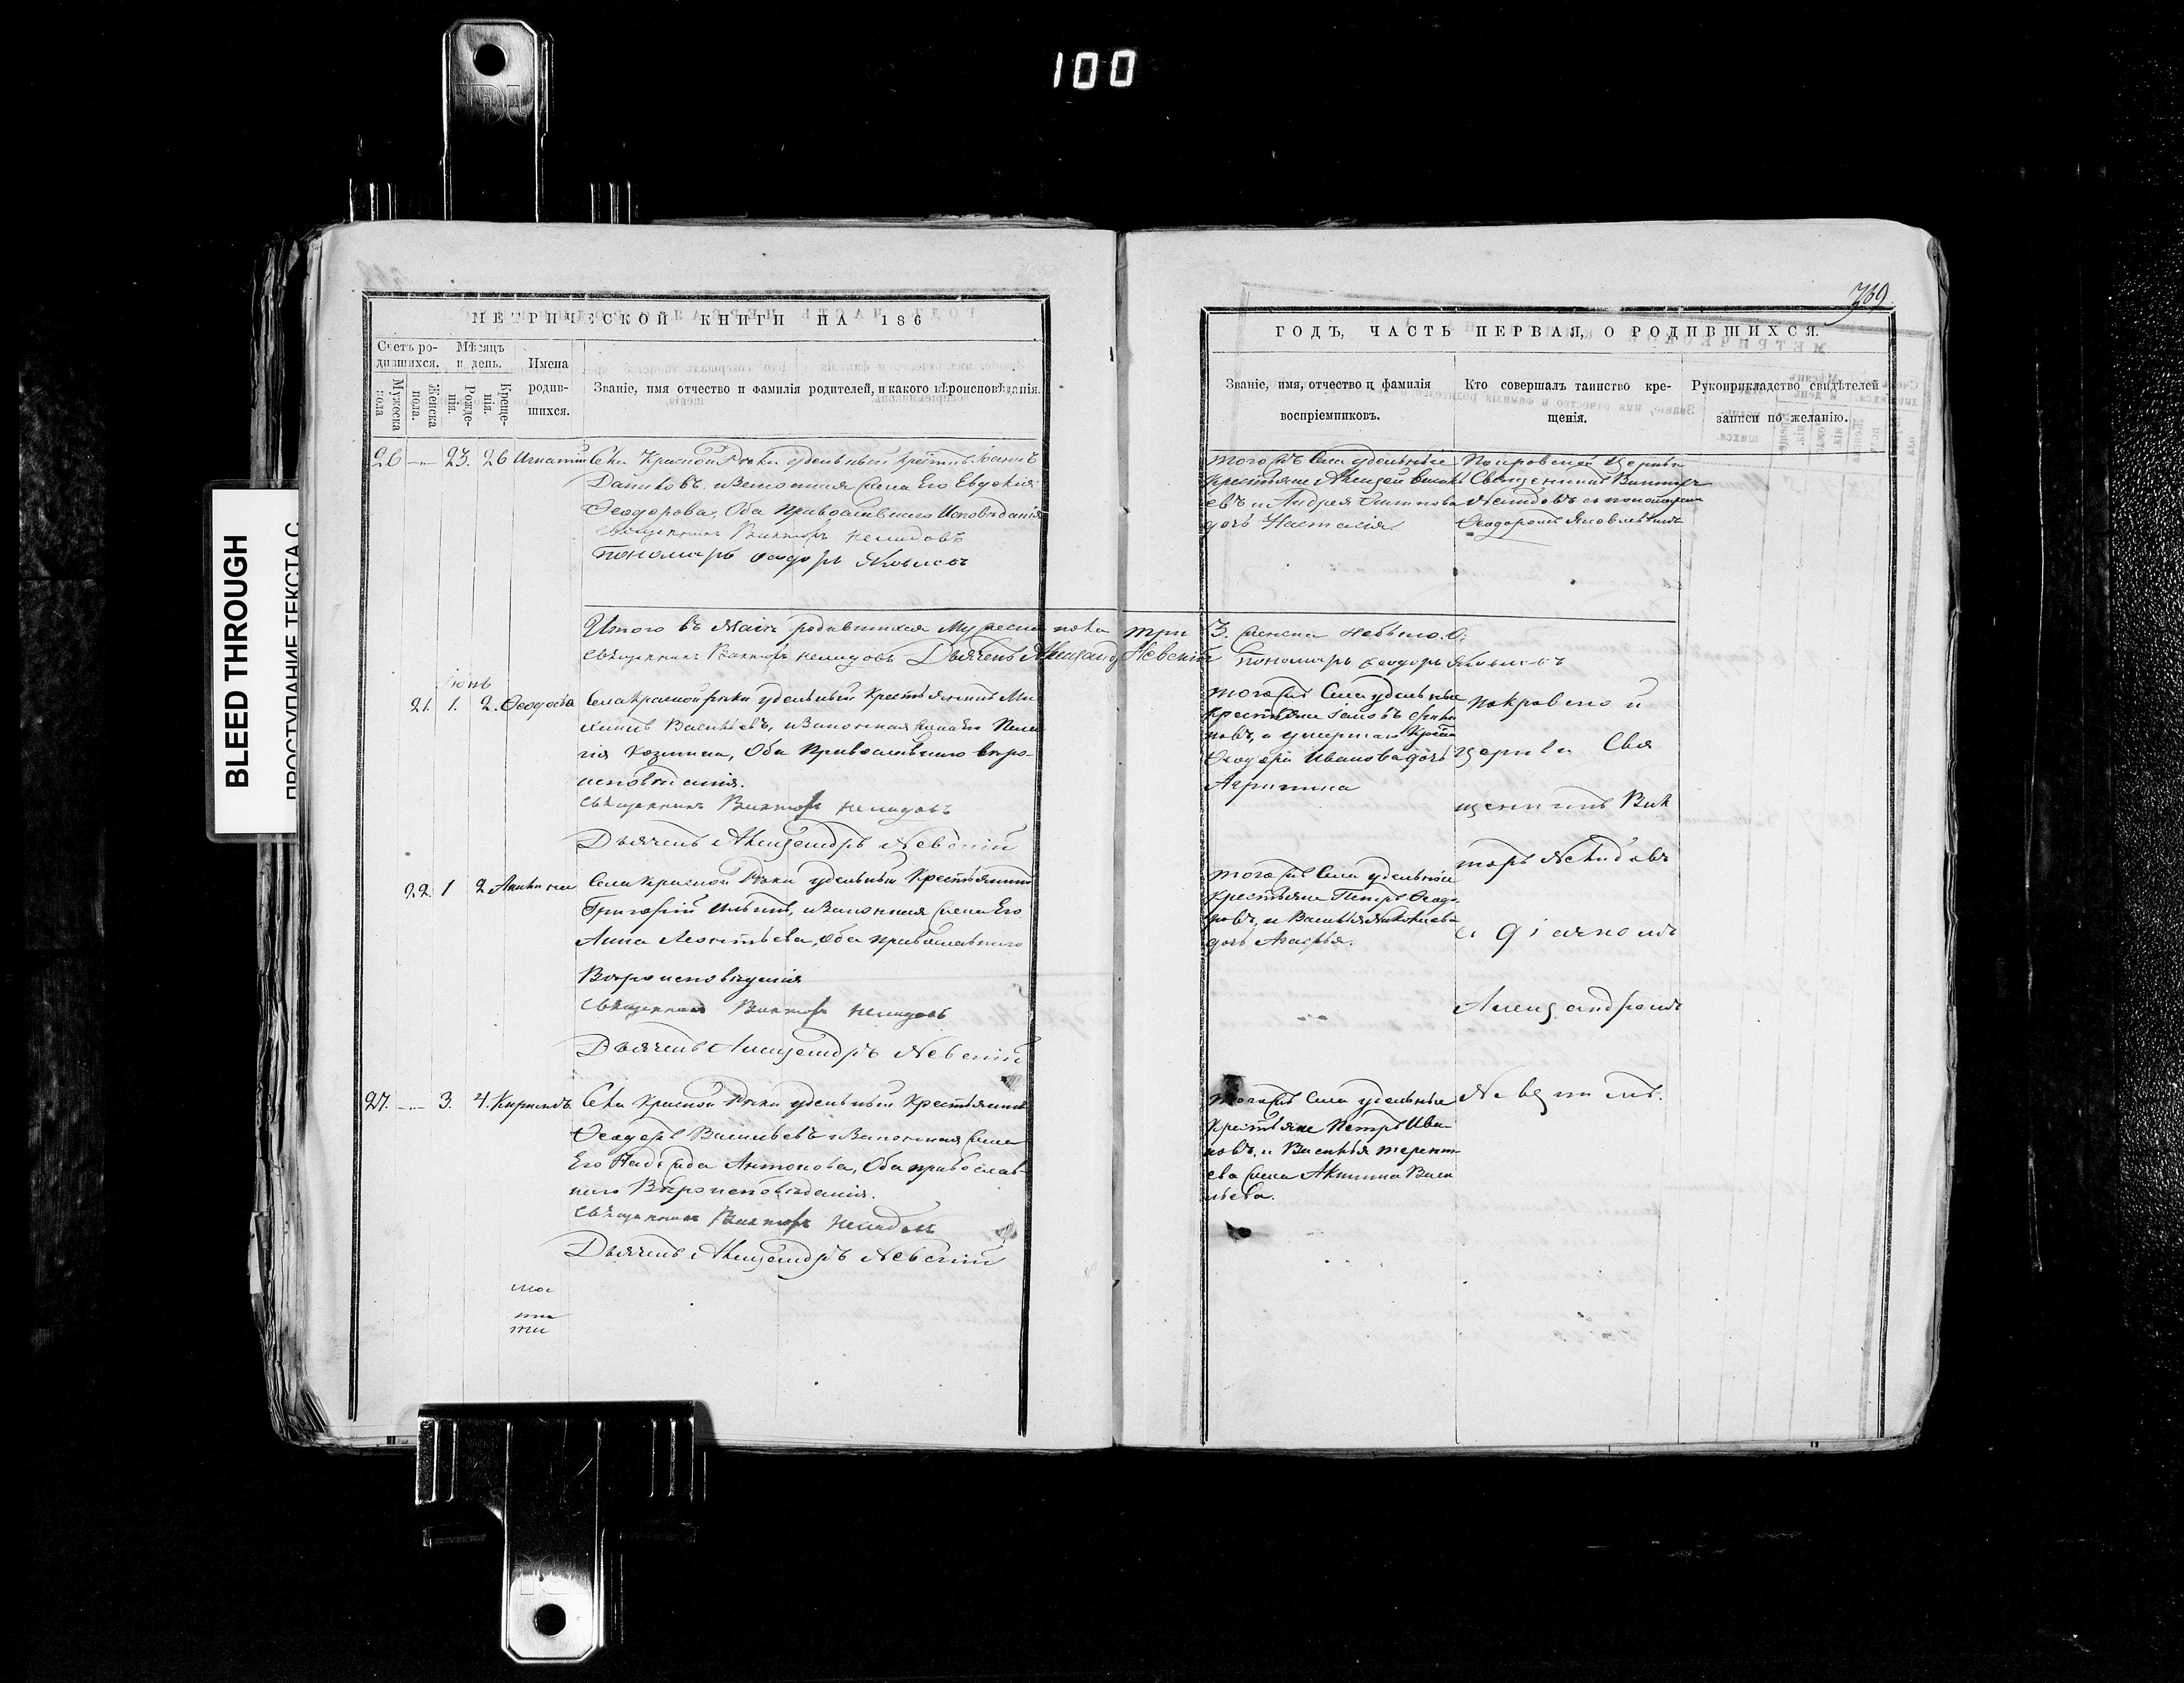 100
BLEED THROUGH
ПРОСТУПАНИЕ ТЕКСТА С
МЕТРИЧЕСКОЙ КНИГИ НА 186
Счетъ ро-
дившихся.
Мужеска
пола
Женска
пола.
Мѣсяцъ
и день.
Рожде-
нія.
Креще-
нія.
Имена
родив-
шихся.
Званіе, имя отчество и фамилія родителей, и какого вѣроисповѣданія.
26 23. 26 Игнатий Села Красной Рѣки удѣльный
Даниловъ и Законная Жена Его Евдокія
Ѳеодорова, Оба Православнаго Исповѣданія
Священникъ Викторъ Нелидовъ
Пономарь Ѳеодоръ Яковлевъ
Итого въ Маіѣ родившихся Мужеска пола три
Священникъ Викторъ Нелидовъ Дьячекъ Александръ Невскій
Іюнь
21. 1. 2. Села Красной рѣки удѣльный Крестьянинъ Ми-
Васильевъ, и Законная жена Его Пела-
гія Козмина, Оба Православнаго вѣро-
исповѣданія.
Священникъ Викторъ Нелидовъ
Дьячекъ Александръ Невскій
22. 1 2 Акилина Села Красной Рѣки удѣльный Крестьянинъ
Григорій Ильинъ, и Законная Жена Его
Анна Леонтьева, Оба православнаго
Вѣроисповѣданія
Священникъ Викторъ Нелидовъ
Дьячекъ Александръ Невскій
27. 3. 4. Кириллъ. Села Красной Рѣки удѣльный Крестьянинъ
Ѳеодоръ Васильевъ и Законная Жена
Его Надежда Антонова, Оба православ-
наго Вѣроисповѣданія.
Священникъ Викторъ Нелидовъ
Дьячекъ Александръ Невскій
369
ГОДЪ, ЧАСТЬ ПЕРВАЯ, О РОДИВШИХСЯ.
Званіе, имя, отчество и фамилія
воспріемниковъ.
Кто совершалъ таинство кре-
щенія.
Рукоприкладство свидѣтелей
записи по желанію.
того жъ Села удѣльные
крестьяне Алексѣй
евъ и Андрея
дочь Наталія
Покровской Церкви
Священникъ Викторъ
Нелидовъ съ пономаремъ
Ѳеодоромъ Яковлевымъ
3. женска небыло. 0.
Пономарь Ѳеодоръ Яковлевъ
того жъ Села удѣльные
крестьяне
новъ, и умершаго
Ѳеодора Иванова дочь
Агрипина
того жъ Села удѣльные
Крестьяне Петръ Ѳеодо-
ровъ, и Василья Яковлева
дочь Агафья.
того жъ Села удѣльные
крестьяне Петръ Ива-
новъ, и Василья терент-
ева жена Акилина Васи-
льева.
Покровской
церкви Свя
щенникъ Вик
торъ Нелидовъ
съ дьячкомъ
Александромъ
Невскимъ.